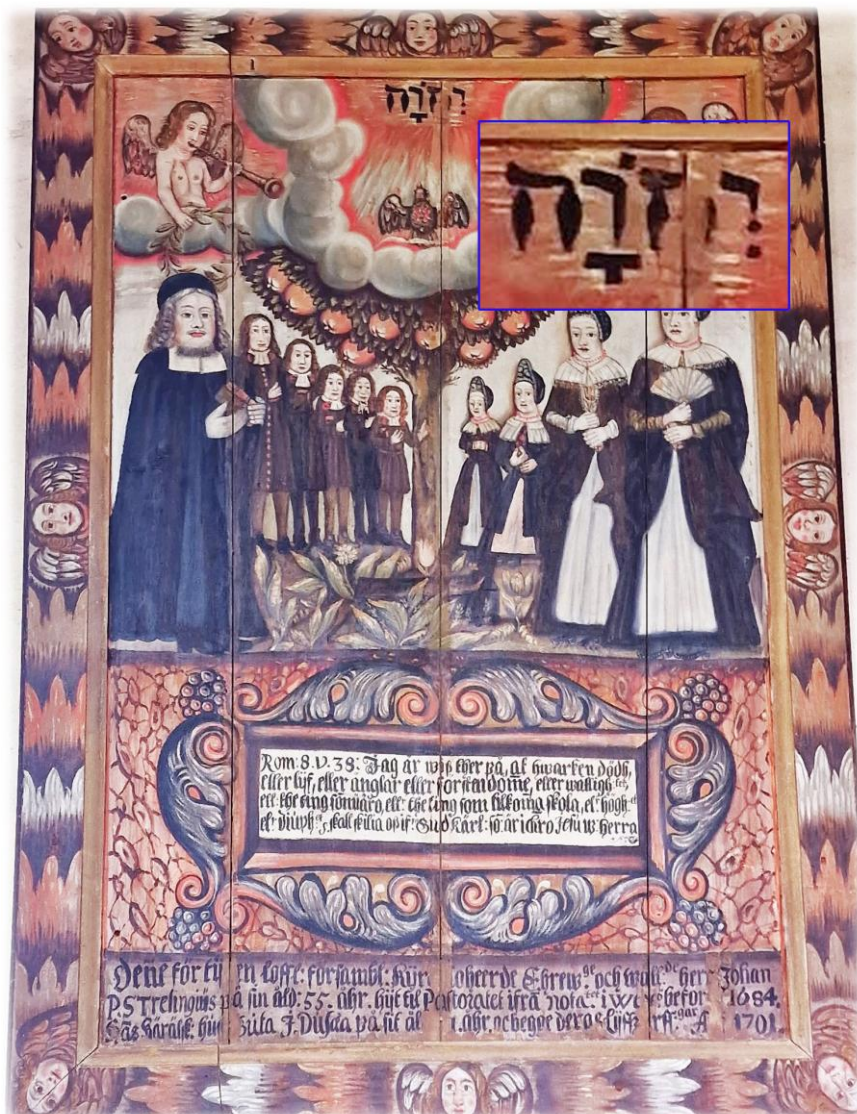 הְ זֹרָה
הְ זֹרָה
Rom: 8. V. 38: Jag är wiß ther på, at hwarken dödh,
eller lijf, eller änglar eller förstadöme, eller
ell: the ting som wäro, ell: the ting som tilkoma skola, el: högh:t
el: diuph:t, skall skilia oß if: Gudz kärl: sö: är i Chro Jesu w: Herra
Dene för tij en Loffl: försambl: Kyr oheerde Ehrew:ge och wäll:de her Johan
P. Strelinguis på sin åld: 55. åhr. hijt til Pastoratet ifrå nota:tet i befor 1684.
J. på sit ål 1. åhr. oc begge deras lijffz arff:gar A 1701.